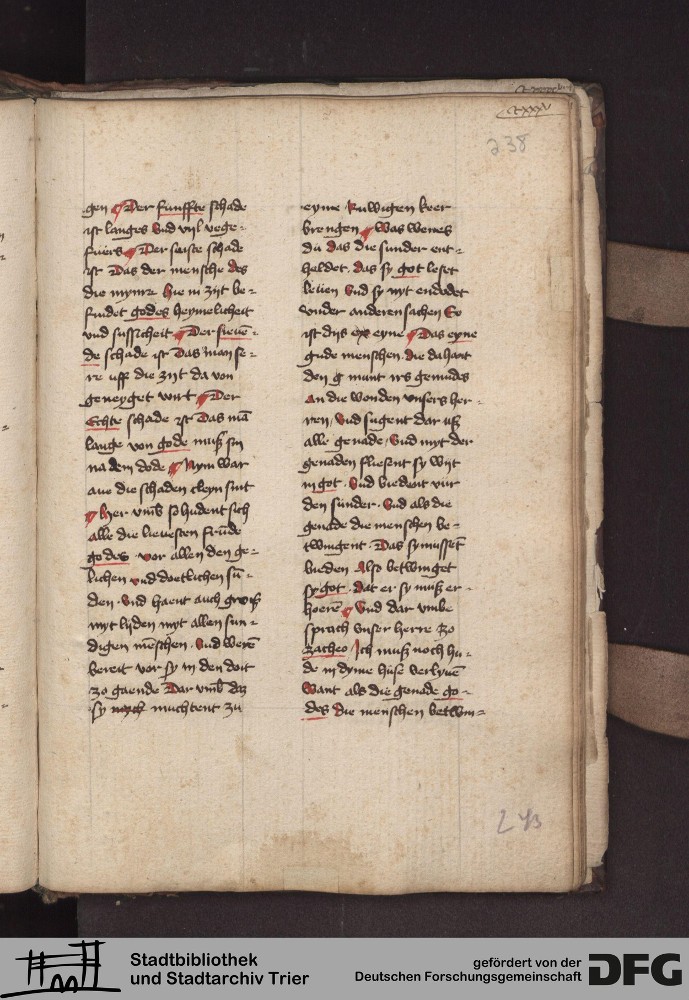 cxxxv
238
gen Der funffte schade
ist langes vnd vil vege-
fuers Der seiste schade
ist Das der mensche des
die mynre hie in zijt be-
findet godes heymelicheit
vnd sussicheit Der sieuē-
de schade ist Das man se-
re uff die zijt da von
geneyget wirt Der
Echte schade ist Das mā
lange von gode muß sin
na dem dode Nym war
aue die schaden cleyn sint
Her vmb so hudent sich
alle die lieuesten frūde
godes vor allen den ge-
lichen vnd doetlichen sū-
den vnd haent auch groiß
myt lijden myt allen sun-
digen mēschen vnd werē
bereit vor sy in den doit
zo gaende Dar vmb daz
sy muchtent zu
eyme Ruwigen keer
brengen Was wenes
du das die sunder ent-
haldet das sy got leset
leuen vnd sy nyt endodet
vnder anderen sachen So
ist dijs eyne Das eyne
gude menschen die dahant
den munt irs gemudes
an die wonden vnsers her-
ren vnd sugent dar uß
alle genade vnd myt der
genaden fliesent sy wijt
in got vnd biedent vur
den sunder vnd als die
genade die menschen be-
twingent Das sy mussēt
bieden Also betwinget
sy got dat er sy muß er-
hoerē vnd dar vmbe
sprach vnser herre zo
zacheo Ich muß noch hu-
de in dyme huse verlyuē
want als die genade go-
des die menschen betwin-
243
Stadtbibliothek
und Stadtarchiv Trier
gefördert von der
Deutschen Forschungsgemeinschaft
DFG